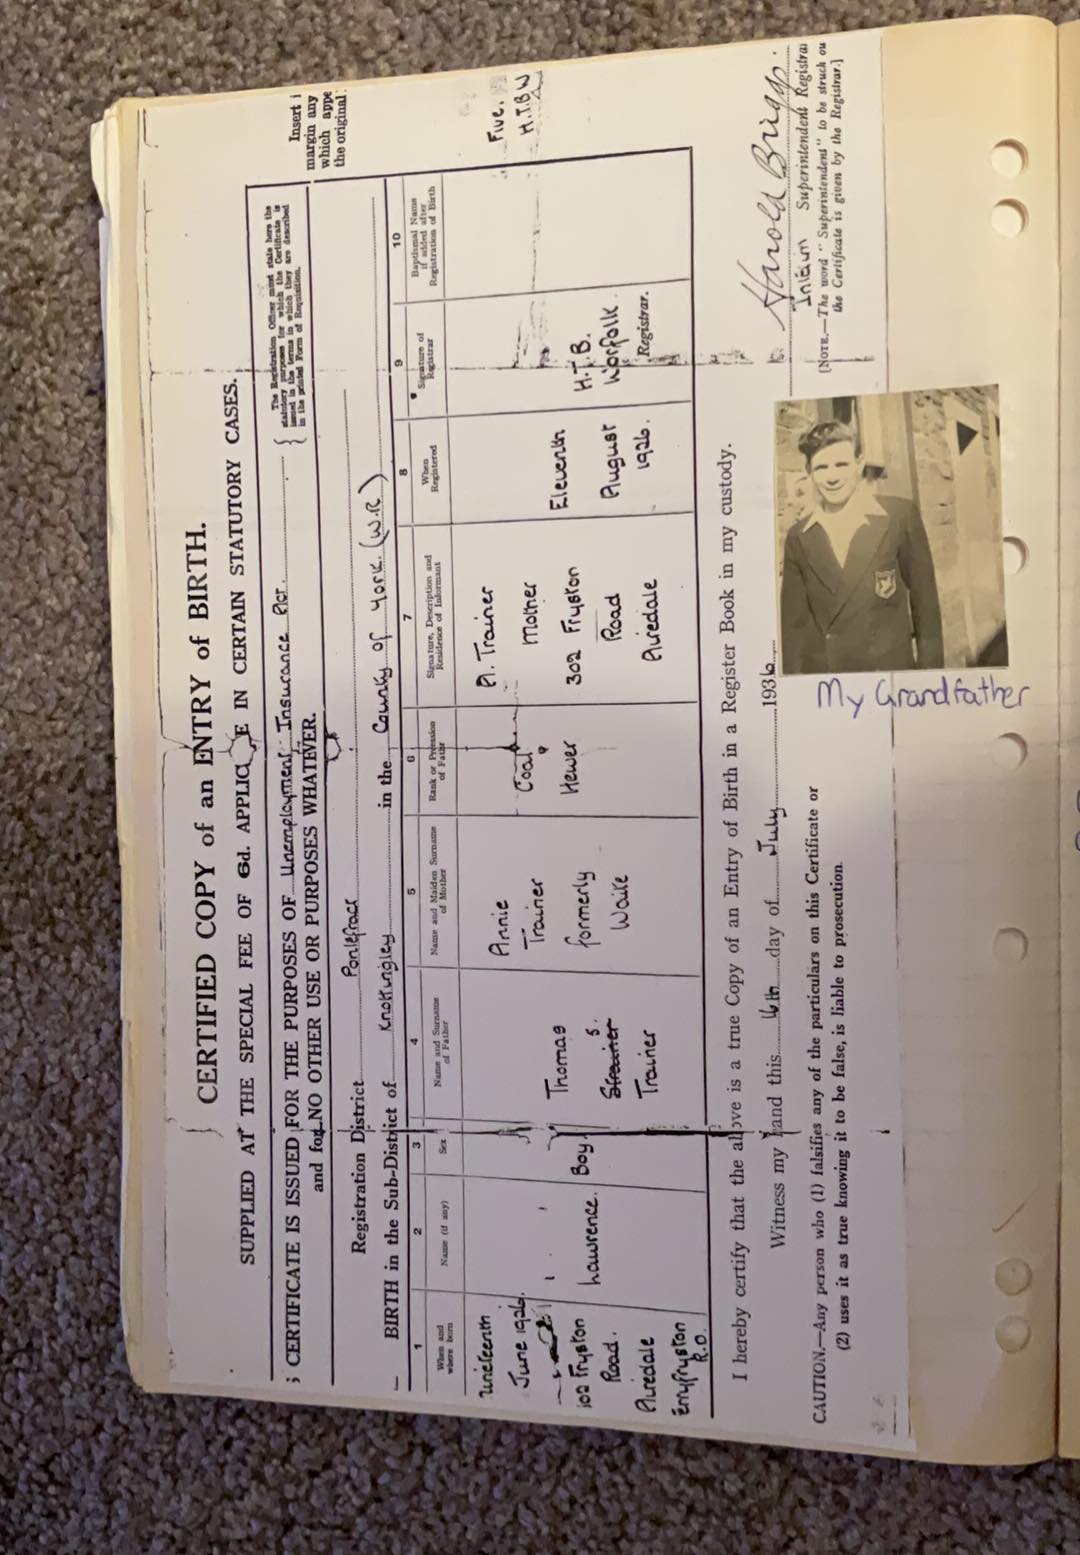 CERTIFIED COPY of an ENTRY of BIRTH.
SUPPLIED AT THE SPECIAL FEE OF 6d. APPLIC E IN CERTAIN STATUTORY CASES.
S CERTIFICATE IS ISSUED FOR THE PURPOSES OF Unemployment Insurance Act.
and for NO OTHER USE OR PURPOSES WHATEVER.
The Registration Officer must state here the
statutory purposes for which the Certificate is
issued in the terms in which they are described
in the printed Form of Requisition.
Insert i
margin any
which appe
the original
Registration District Pontefract
BIRTH in the Sub-District of Knottingley in the County of York. (W.R)
1 2 3 4 5 6 7 8 9 10
When and
where born
Name (if any)
Sex
Name and Surname
of Father
Name and Maiden Surname
of Mother
Rank or Profession
of Father
Signature, Description and
Residence of Informant
When
Registered
Signature of
Registrar
Baptismal Name
if added after
Registration of Birth
June 1926.
Fryston
Road.
Airedale
R.D.
Lawrence.
Boy.
Thomas
S.
Strainer
Trainer
Annie
Trainer
formerly
Waite
Coal
Hewer
A. Trainer
Mother
302 Fryston
Road
Airedale
Eleventh
August
1926.
H.T.B.
Worfolk
Registrar.
Five.
H.T.B.W
I hereby certify that the above is a true Copy of an Entry of Birth in a Register Book in my custody.
Witness my hand this 16th day of July 1936
Harold Briggs.
Interim Superintendent Registrar
[NOTE.—The word "Superintendent" to be struck ou
the Certificate is given by the Registrar.]
CAUTION.—Any person who (1) falsifies any of the particulars on this Certificate or
(2) uses it as true knowing it to be false, is liable to prosecution.
My Grandfather